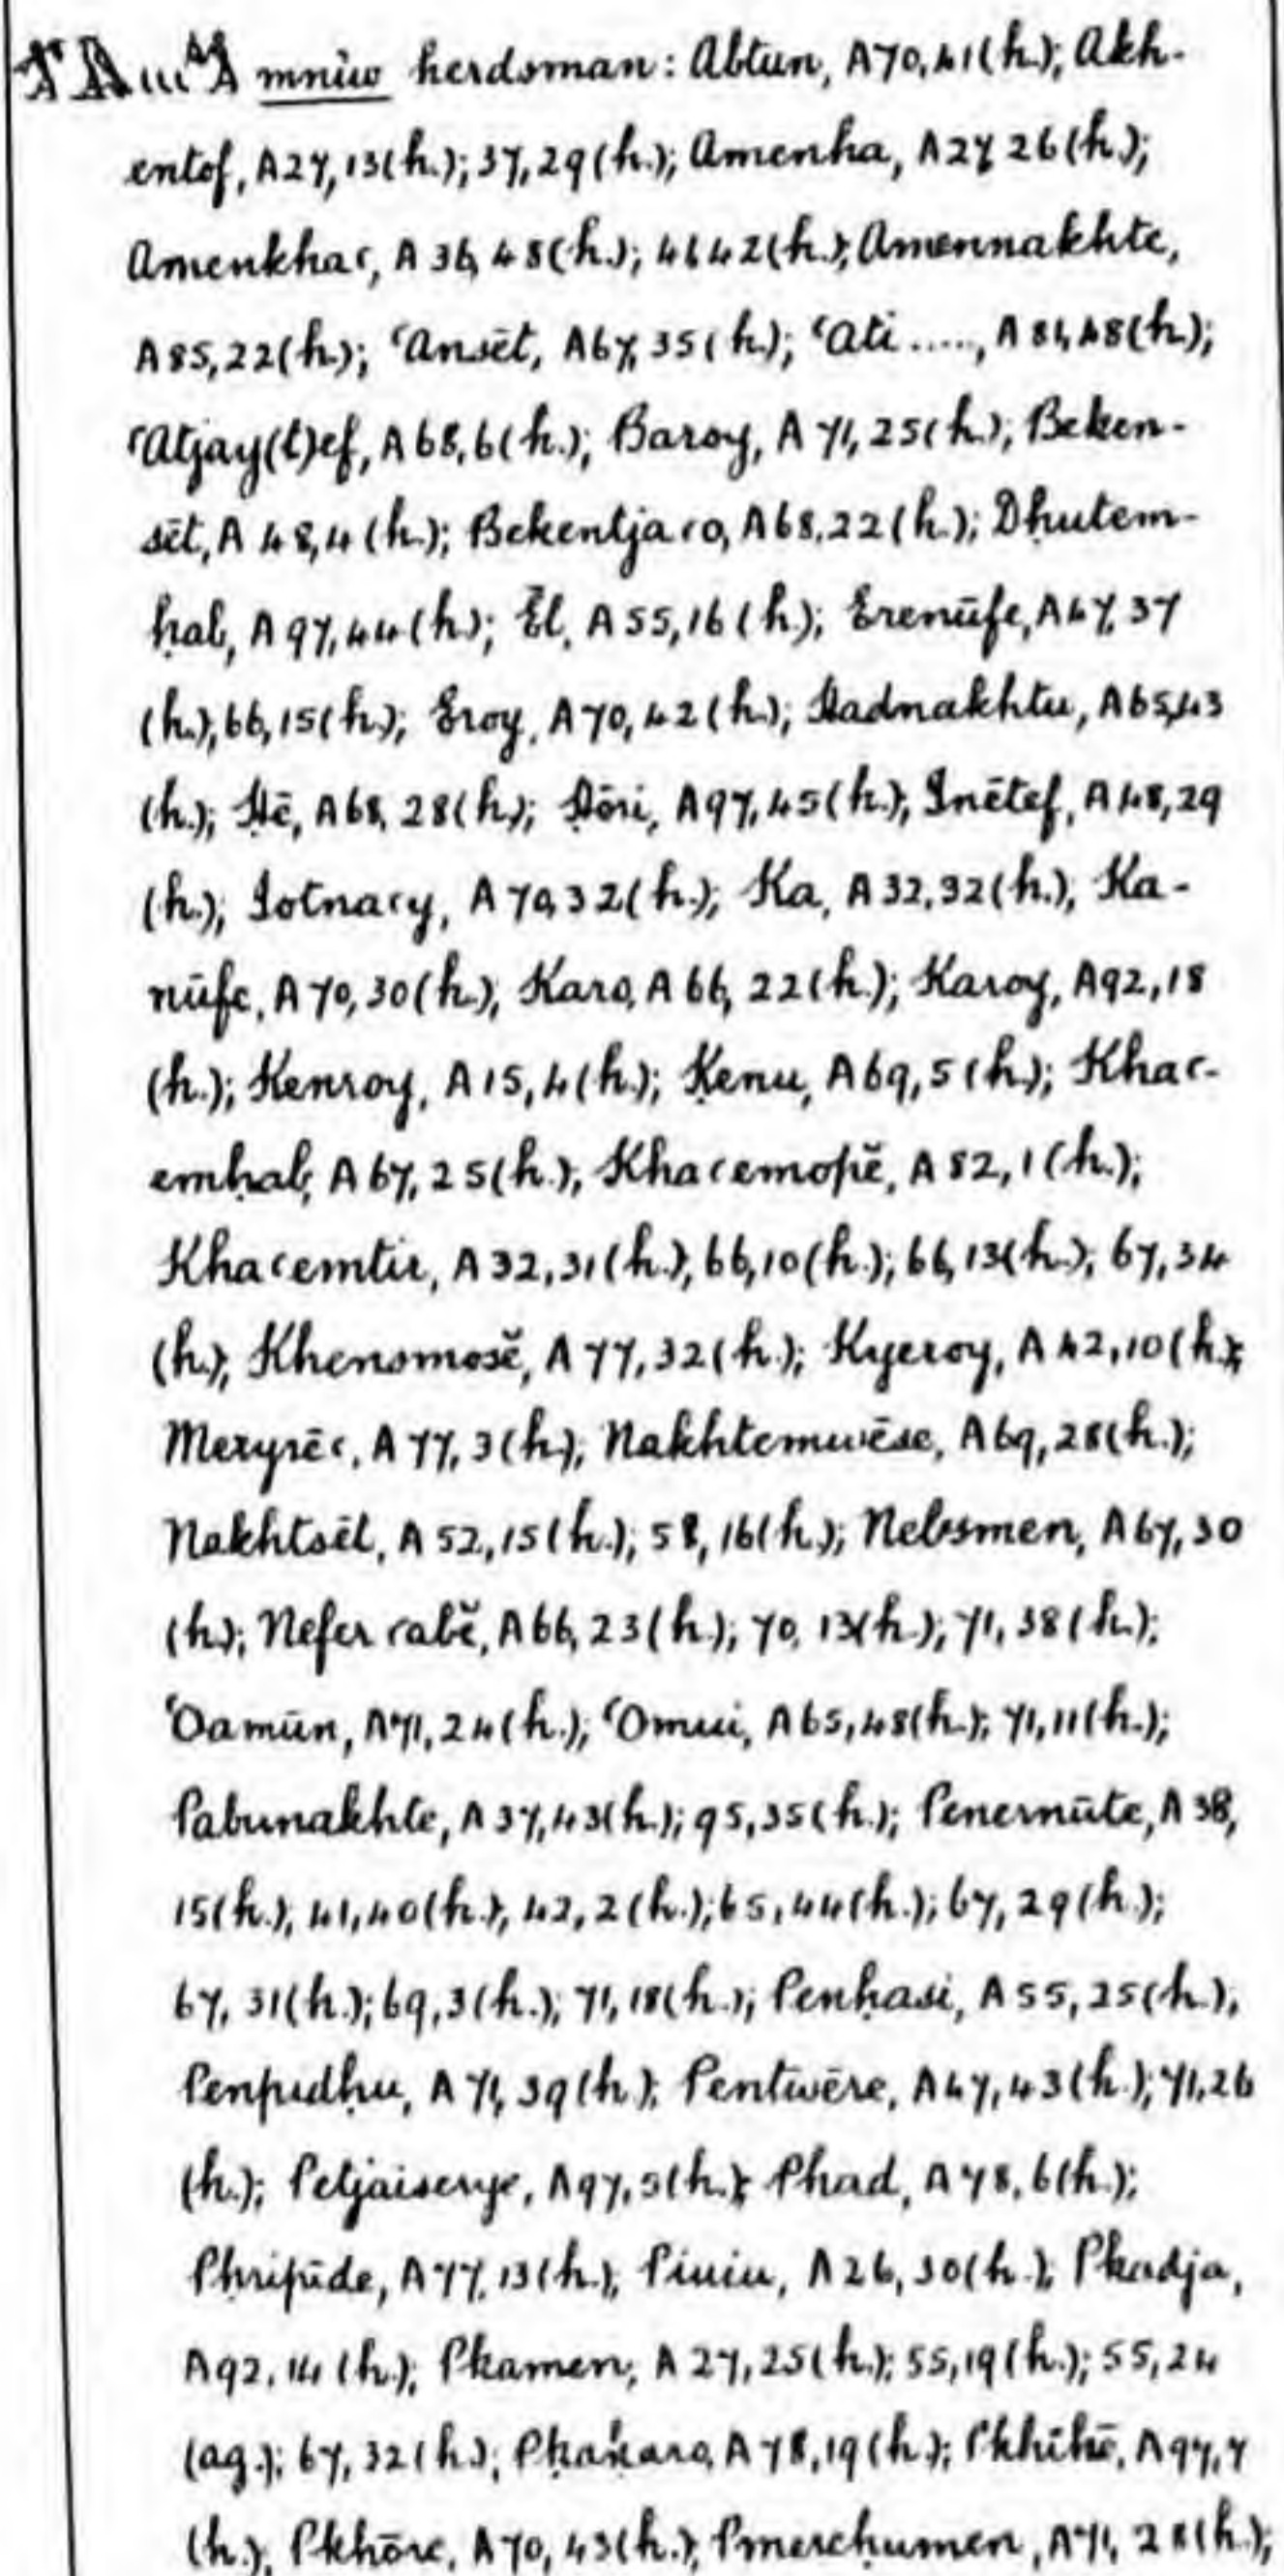 mnỉw herdsman: Abtun, A70,41(h.); Akh-
entof, A27,13(h.); 37,29(h.); Amenha, A27,26(h.);
Amenkhaʿ, A36,48(h.); 46,42(h.); Amennakhte,
A85,22(h.); ʿAnsēt, A67,35(h.); ʿAti....., A81,48(h.);
ʿAtjay(t)ef, A68,6(h.); Baroy, A71,25(h.); Beken-
sēt, A48,4(h.); Bekentjaʿo, A68,22(h.); Dḥutem-
ḥab, A97,44(h.); Ēl, A55,16(h.); Erenūfe, A47,37
(h.), 66,15(h.); Eroy, A70,42(h.); Hadnakhtu, A65,43
(h.); Ḥē, A68,28(h.); Ḥōri, A97,45(h.); Inētef, A48,29
(h.); Iotnaʿy, A70,32(h.); Ka, A32,32(h.); Ka-
nūfe, A70,30(h.); Karo, A66,22(h.); Karoy, A92,18
(h.); Kenroy, A15,4(h.); Ḳenu, A69,5(h.); Khaʿ-
emḥab, A67,25(h.); Khaʿemopĕ, A82,1(h.);
Khaʿemtir, A32,31(h.), 66,10(h.); 66,13(h.); 67,34
(h.); Khensmosĕ, A77,32(h.); Kyeroy, A42,10(h.);
Meryrēʿ, A77,3(h.); Nakhtemwēse, A69,28(h.);
Nakhtsēt, A52,15(h.); 58,16(h.); Nebsmen, A67,30
(h.); Neferʿabĕ, A66,23(h.); 70,13(h.); 71,38(h.);
ʿOamūn, A71,24(h.); ʿOmui, A65,48(h.); 71,11(h.);
Pabunakhte, A37,43(h.); 95,35(h.); Penernūte, A38,
15(h.); 41,40(h.), 42,2(h.); 65,44(h.); 67,29(h.);
67,31(h.); 69,3(h.); 71,18(h.); Penḥasi, A55,25(h.);
Penpidḥu, A71,39(h.); Pentwēre, A47,43(h.); 71,26
(h.); Petjaisenye, A97,5(h.); Phad, A78,6(h.);
Pḥripīde, A77,13(h.); Piuiu, A26,30(h.); Pkadja,
A92,14(h.); Pkamen, A27,25(h.); 55,19(h.); 55,24
(ag.); 67,32(h.); Pḳaḳaro, A78,19(h.); Pkhīhē, A97,7
(h.); Pkhōre, A70,43(h.); Pmerehumen, A71,28(h.);